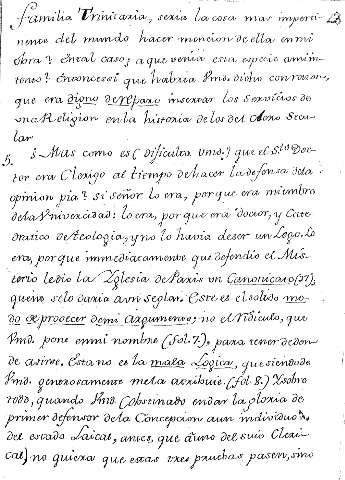 familia Trinitaria, seria la cosa mas imperti-
nente del mundo hacer mencion de ella en mi
obra? En tal caso, a que venia esta especie a mi in-
tento? Entonces si que habria Vmd. dicho con razon,
que era digno de reparo insertar los Servicios de
una Religion en la historia de los del Clero Secu-
lar
5. ¿Mas como es (dificulta Vmd.) que el Sto. Doc-
tor era Clerigo al tiempo de hacer la defensa de la
opinion pia? si señor lo era, por que era miembro
de la Univercidad: lo era, por que era Doctor, y Cate
dratico de Teologia, y no lo havia de ser un Lego. Lo
era, por que immediatamente que defendio el Mis-
terio le dio la Yglesia de Paris un Canonicato (37),
que no se lo daria a un seglar. Este es el solido mo-
do de proceder de mi Argumento; no el ridiculo, que
Vmd. pone en mi nombre (fol. 7.), para tener de don-
de asirse. Esta no es la mala Logica, que siendo de
Vmd. generosamente me la atribuie. (fol 8.) Y sobre
todo, quando Vmd. Obstinado en dar la gloria de
primer defensor de la Concepcion a un individuo
del estado Laical, antes que a uno del suio Cleri-
cal) no quiera que estas tres pruebas pasen, sino